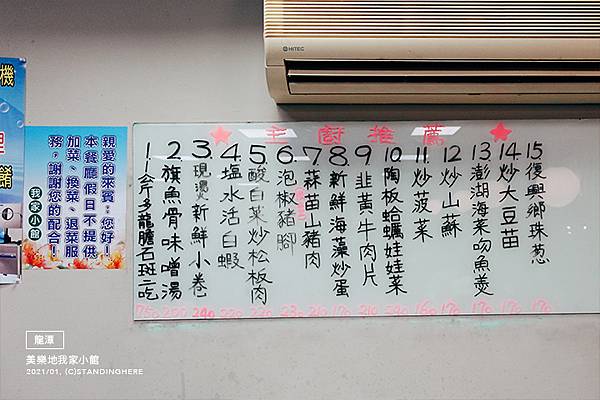 HITEC
★主廚推薦★
1.一斤多龍膽石斑二吃
2.旗魚骨味噌湯
3.現燙新鮮小卷
4.塩水活白蝦
5.酸白菜炒松板肉
6.泡椒豬腳
7.蒜苗山豬肉
8.新鮮海藻炒蛋
9.韭黃牛肉片
10.陶板蛤蠣娃娃菜
11.炒菠菜
12.炒山蘇
13.澎湖海菜吻魚羹
14.炒大豆苗
15.復興鄉珠蔥
240
親愛的來賓：您好！
本餐廳假日不提供
加菜、換菜、退菜服
務，謝謝您的配合！
我家小館
機
龍潭
美樂地我家小館
2021/01, (C)STANDINGHERE